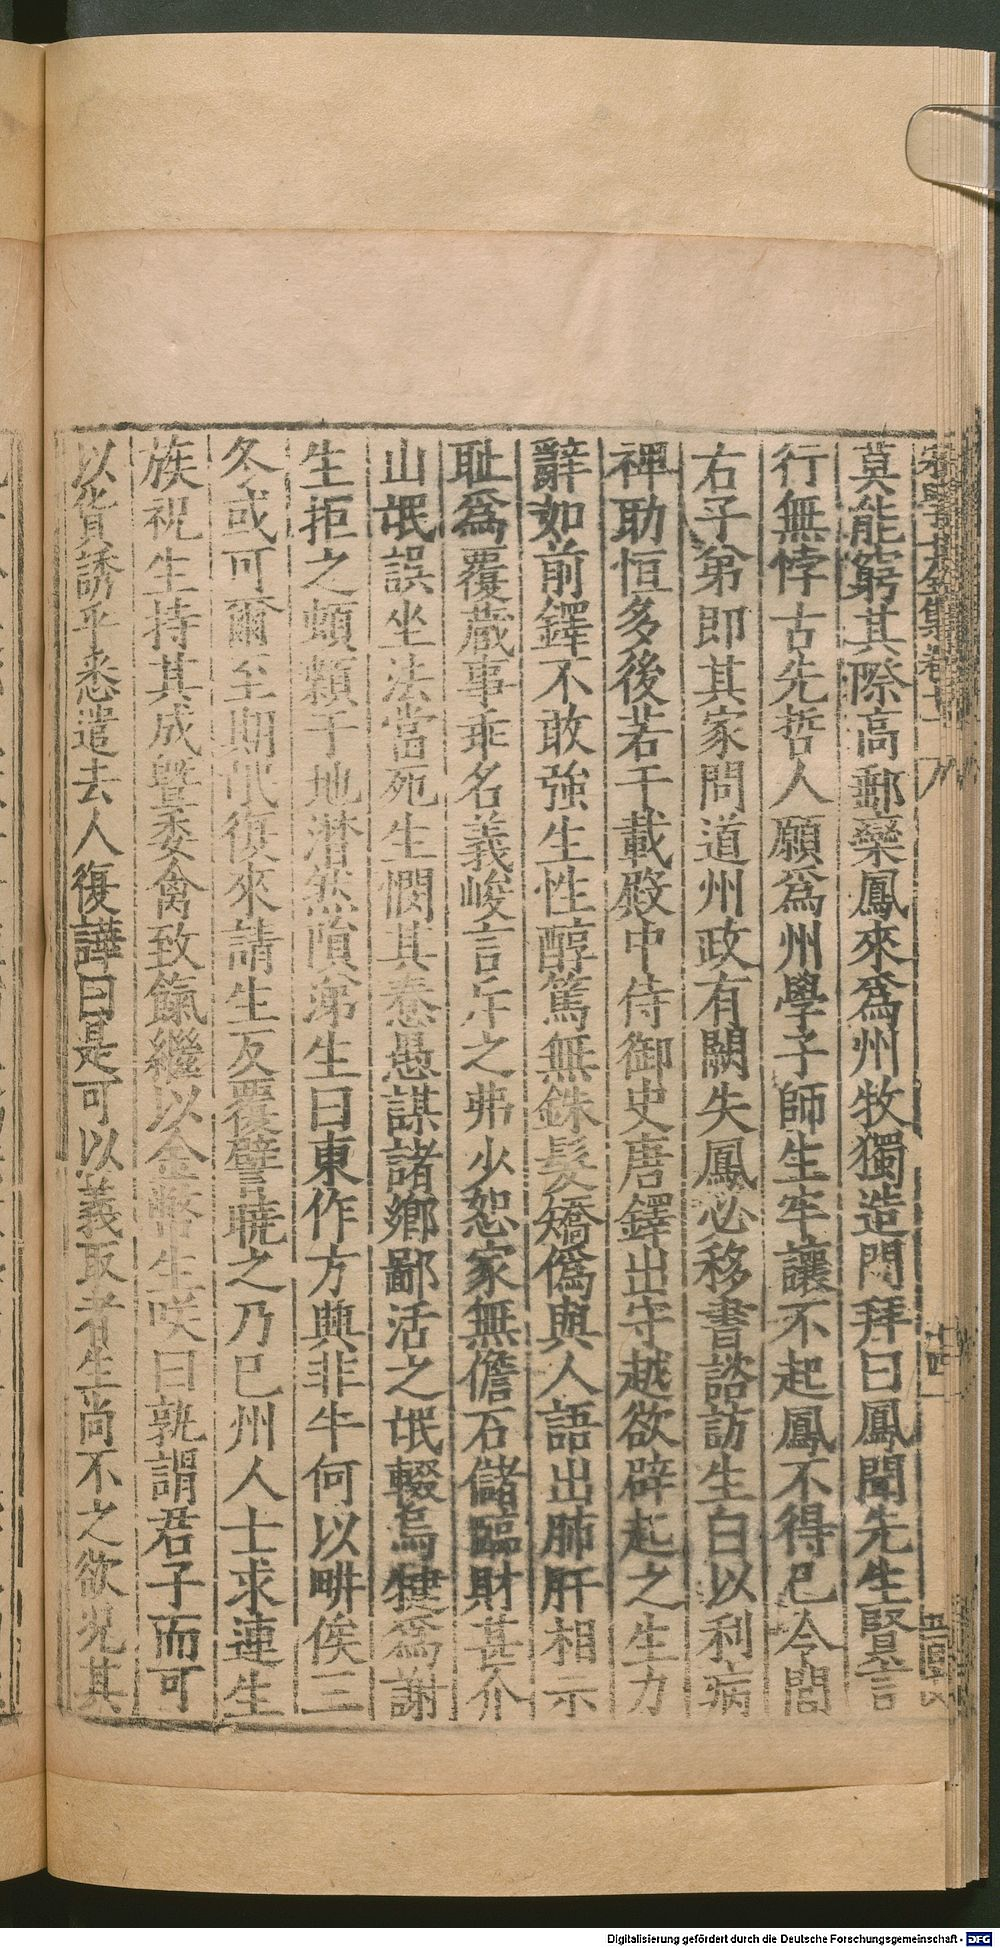 宋學士全集卷十
莫能窮其際高郵欒鳳來爲州牧獨造門拜曰鳳聞先生賢言
行無悖古先哲人願爲州學子師生牢讓不起鳳不得已令閭
右子弟即其家問道州政有闕失鳳必移書諮訪生白以利病
禆助恒多後若干載殿中侍御史唐鐸出守越欲辟起之生力
辭如前鐸不敢強生性醇篤無銖髮矯僞與人語出肺肝相示
耻爲覆蔵事乖名義峻言斥之弗少恕家無儋石儲臨財甚介
山氓誤坐法當死生憫其惷愚謀諸鄉鄙活之氓輟烏犍爲謝
生拒之頓顙于地潸然隕涕生曰東作方興非牛何以畊俟三
冬或可爾至期氓復來請生反覆譬曉之乃已州人士求連生
族祝生持其成曁委禽致餼繼以金幣生咲曰孰謂君子而可
以貨誘乎悉遣去人復譁曰是可以義取者生尚不之欲況其
十四
Digitalisierung gefördert durch die Deutsche Forschungsgemeinschaft - DFG